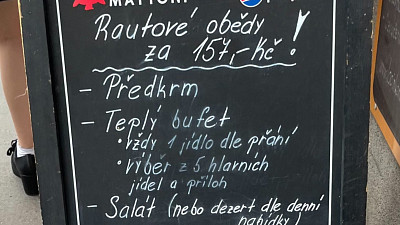 MATTONI
Rautové obědy
za 157,- Kč!
- Předkrm
- Teplý bufet
• vždy 1 jídlo dle přání
• výběr z 5 hlavních
jídel a příloh
- Salát (nebo dezert dle denní
nabídky)